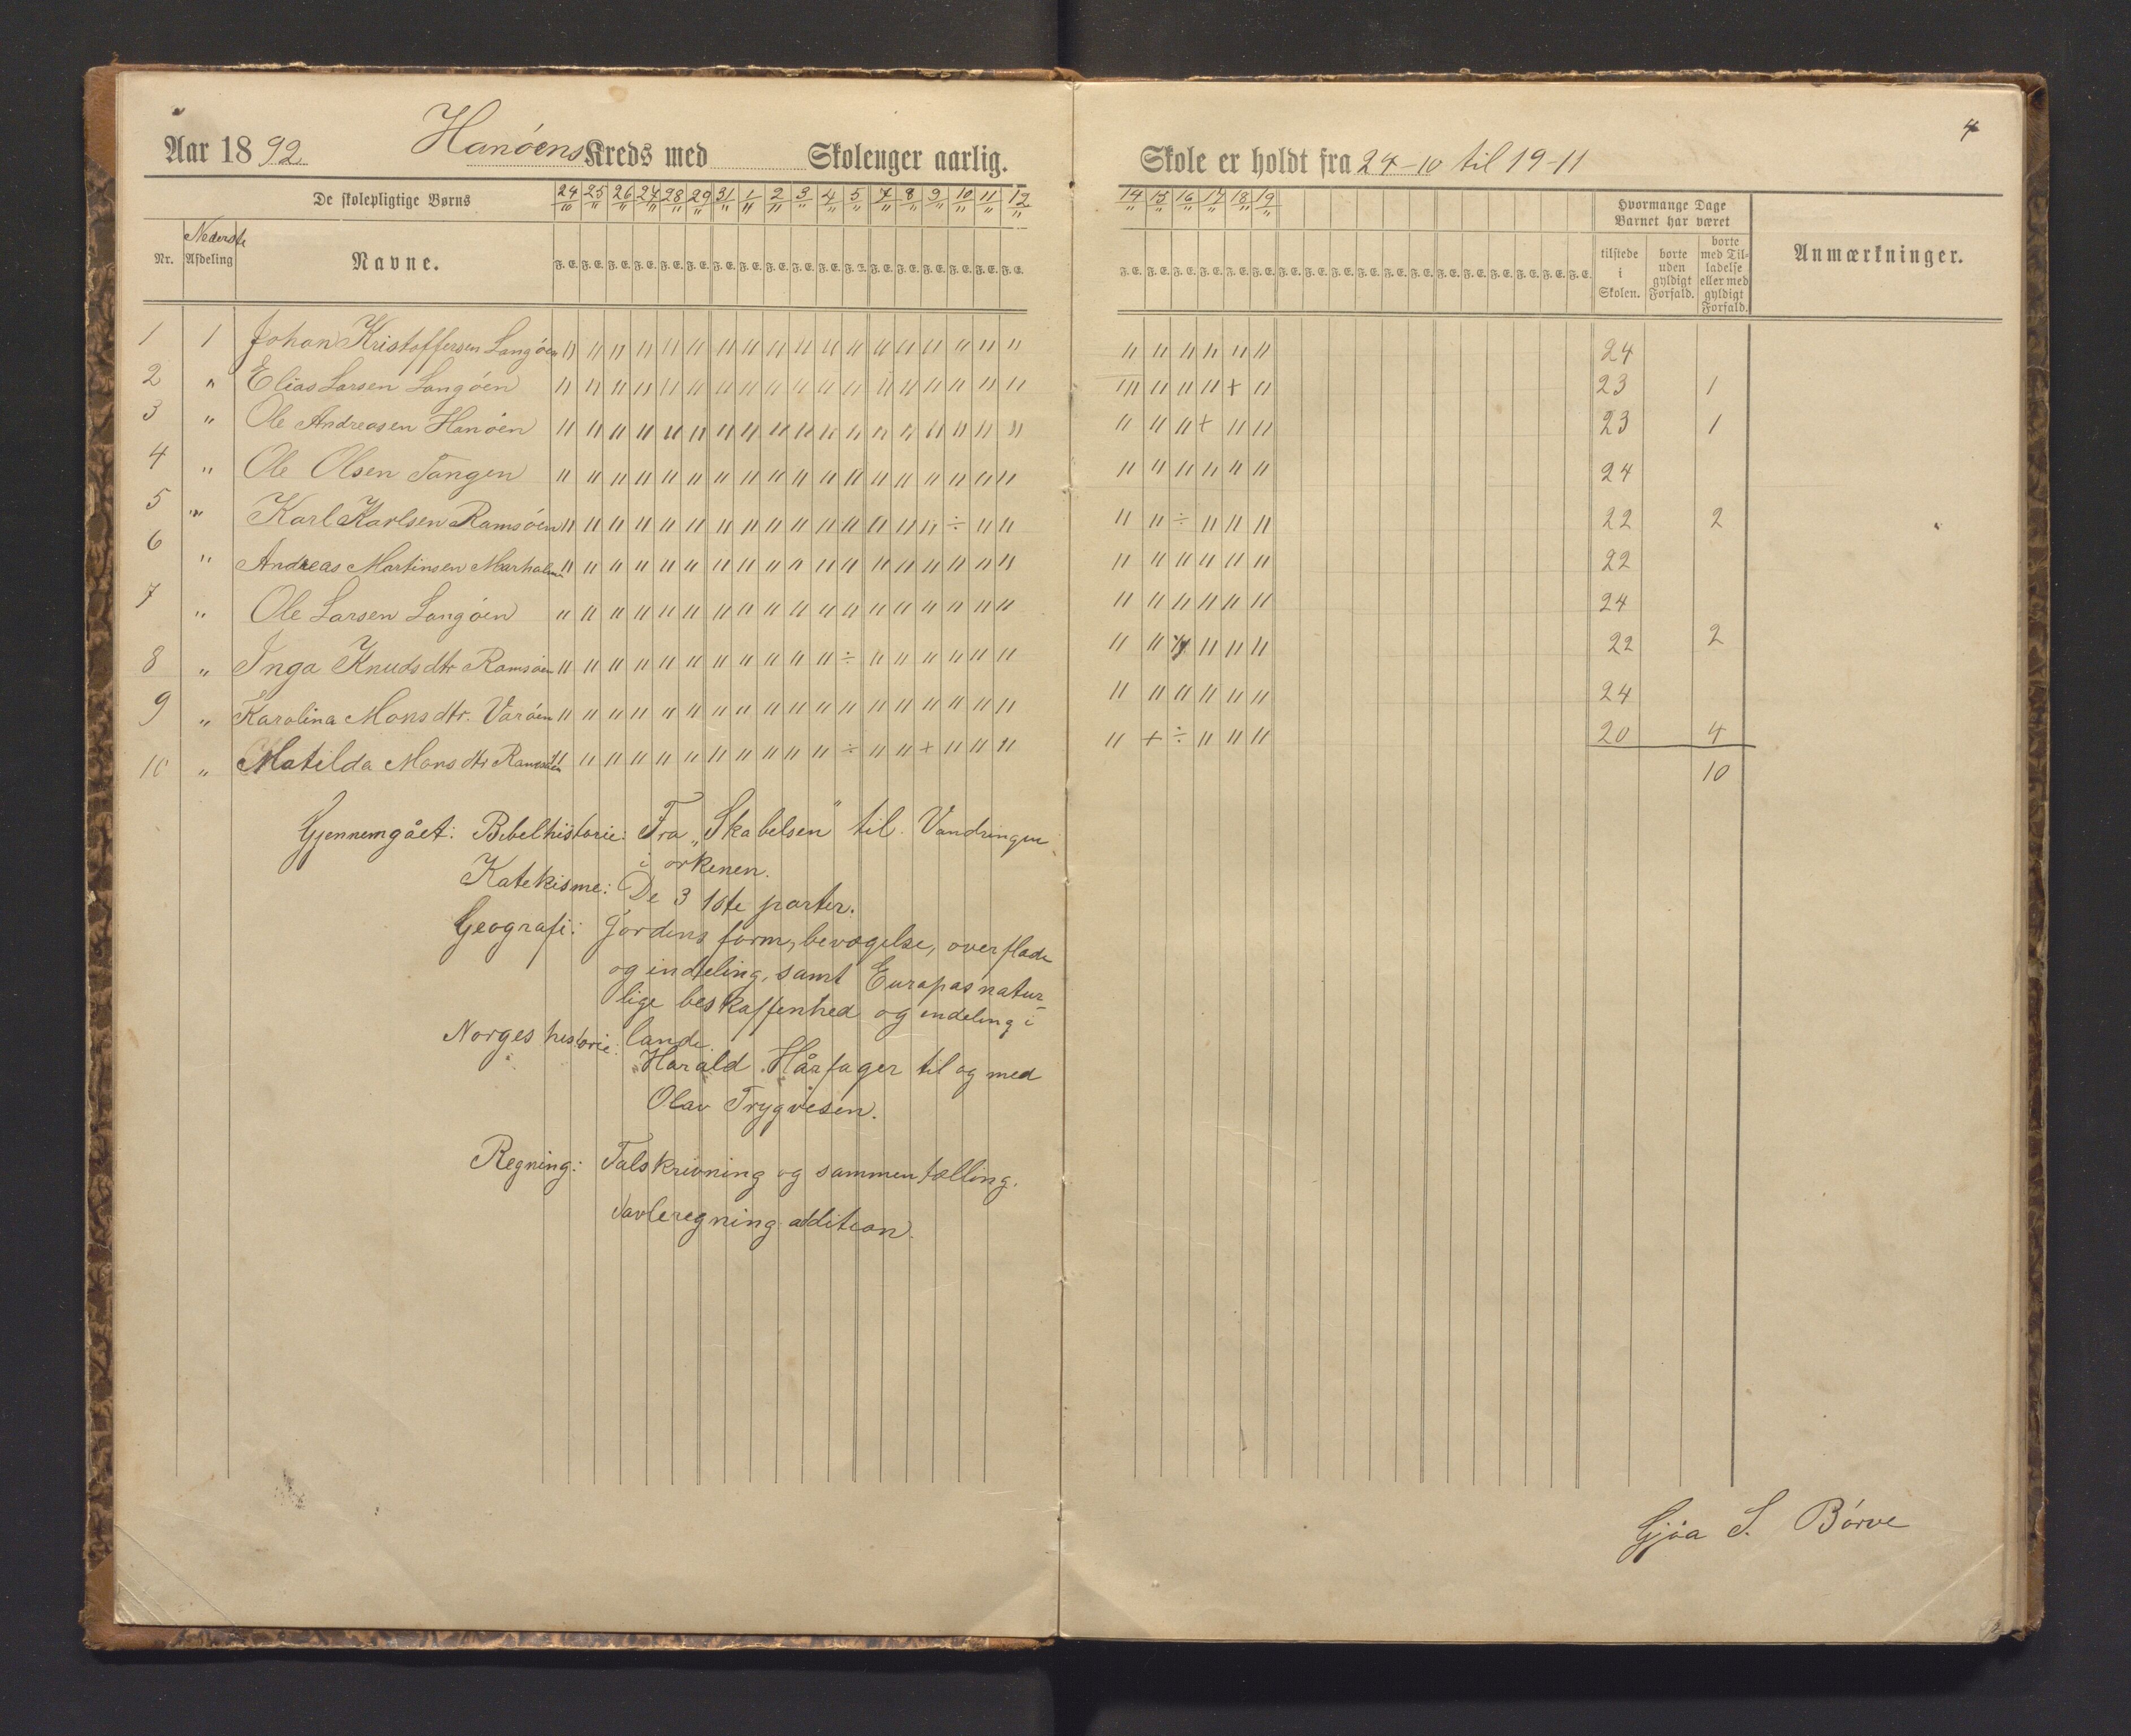 Aar 1892. Hanöens Kreds med Skolenger aarlig.
De skolepligtige Børns 24/10 25/" 26/" 27/" 28/" 29/" 31/" 1/11 2/11 3/" 4/" 5/" 7/" 8/" 9/" 10/" 11/" 12/"
Nr. Nederste Afdeling Navne. F. E. F. E. F. E. F. E. F. E. F. E. F. E. F. E. F. E. F. E. F. E. F. E. F. E. F. E. F. E. F. E. F. E. F. E.
1 1 Johan Kristoffersen Langöen " " " " " " " " " " " " " " " " " "
2 " Elias Larsen Langöen " " " " " " " " " " " " " " " " " "
3 " Ole Andreasen Hanöen " " " " " " " " " " " " " " " " " "
4 " Ole Olsen Tangen " " " " " " " " " " " " " " " " " "
5 " Karl Karlsen Ramsöen " " " " " " " " " " " " " " " ÷ " "
6 " Andreas Martinsen Marholmen " " " " " " " " " " " " " " " " " "
7 " Ole Larsen Langöen " " " " " " " " " " " " " " " " " "
8 " Inga Knudsdtr Ramsöen " " " " " " " " " " " ÷ " " " " " "
9 " Karolina Monsdtr. Varöen " " " " " " " " " " " " " " " " " "
10 " Matilda Monsdtr Ramsöen " " " " " " " " " " " ÷ " " + " " "
Gjennemgået: Bibelhistorie: Fra „Skabelsen" til Vandringen
i orkenen.
Katekisme: De 3 1ste parter.
Geografi: Jordens form, bevægelse, overflade
og inddeling, samt Europas natur-
lige beskaffenhed og indeling i
lande.
Norges historie: Harald Hårfager til og med
Olav Trygvesen.
Regning: Talskrivning og sammentælling.
Tavleregning addition.
4
Skole er holdt fra 24-10 til 19-11
14/" 15/" 16/" 17/" 18/" 19/" Hvormange Dage
Barnet har været
F. E. F. E. F. E. F. E. F. E. F. E. F. E. F. E. F. E. F. E. F. E. F. E. F. E. F. E. F. E. F. E. F. E. F. E. tilstede i Skolen. borte uden gyldigt Forfald. borte med Tilladelse eller med gyldigt Forfald. Anmærkninger.
" " " " " " 24
" " " " + " 23 1
" " " + " " 23 1
" " " " " " 24
" " ÷ " " " 22 2
" " " " " " 22
" " " " " " 24
" " " " " 22 2
" " " " " " 24
" + ÷ " " " 20 4
10
Gjöa S. Börve